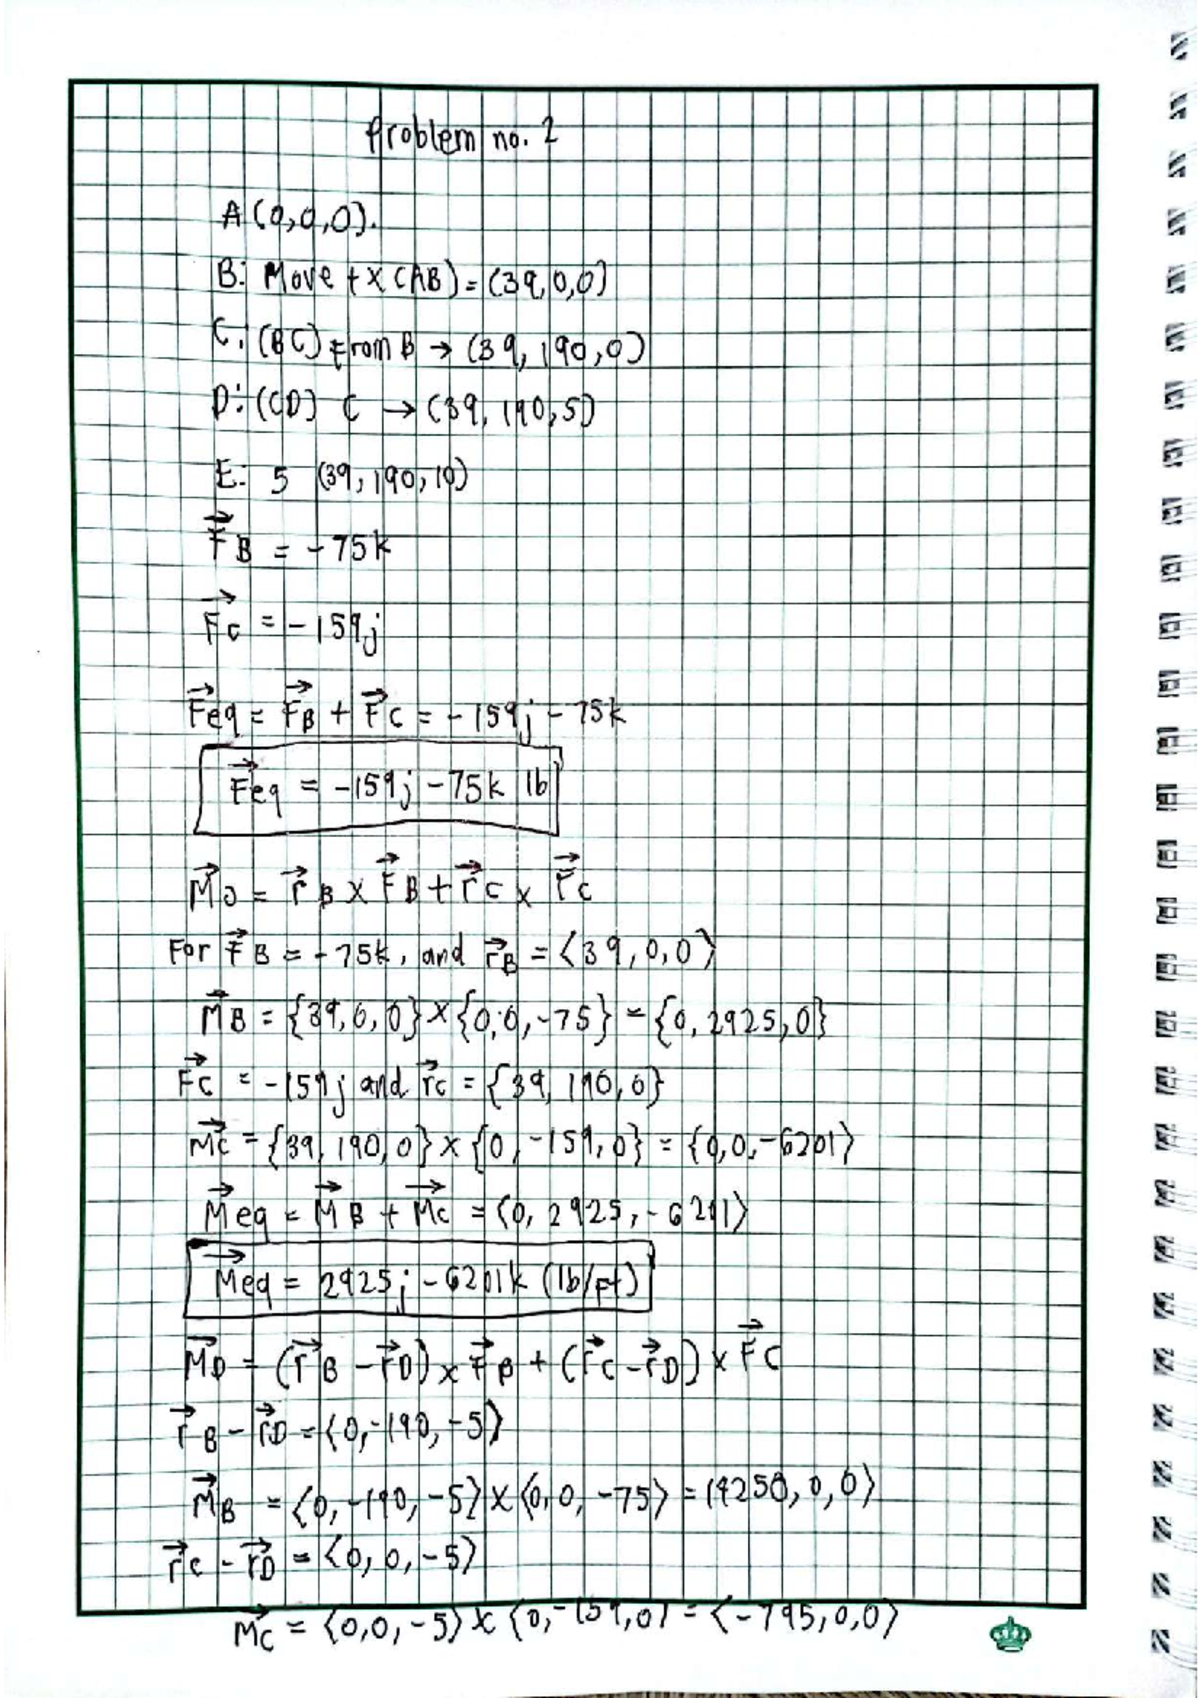 Problem no. 2
A (0,0,0).
B: Move +x (AB) = (39,0,0)
C: (BC) from B → (39, 190, 0)
D: (CD) C → (39, 190, 5)
E: 5 (39, 190, 10)
F⃗B = -75k
F⃗c = -159j
F⃗eq = F⃗B + F⃗C = -159j - 75k
F⃗eq = -159j - 75k lb
M⃗o = r⃗B × F⃗B + r⃗C × F⃗c
For F⃗B = -75k, and r⃗B = ⟨39,0,0⟩
M⃗B = {39,0,0} × {0,0,-75} = {0, 2925, 0}
F⃗C = -159j and r⃗c = {39, 190, 0}
M⃗c = {39, 190, 0} × {0, -159, 0} = {0,0,-6201⟩
M⃗eq = M⃗B + M⃗c = ⟨0, 2925, -6201⟩
M⃗eq = 2925j - 6201k (lb/ft)
M⃗D = (r⃗B - r⃗D) × F⃗B + (r⃗C - r⃗D) × F⃗C
r⃗B - r⃗D = ⟨0, -190, -5⟩
M⃗B = ⟨0, -190, -5⟩ × ⟨0, 0, -75⟩ = 14250, 0, 0⟩
r⃗c - r⃗D = ⟨0, 0, -5⟩
M⃗c = ⟨0,0,-5⟩ × ⟨0,-159,0⟩ = ⟨-795,0,0⟩